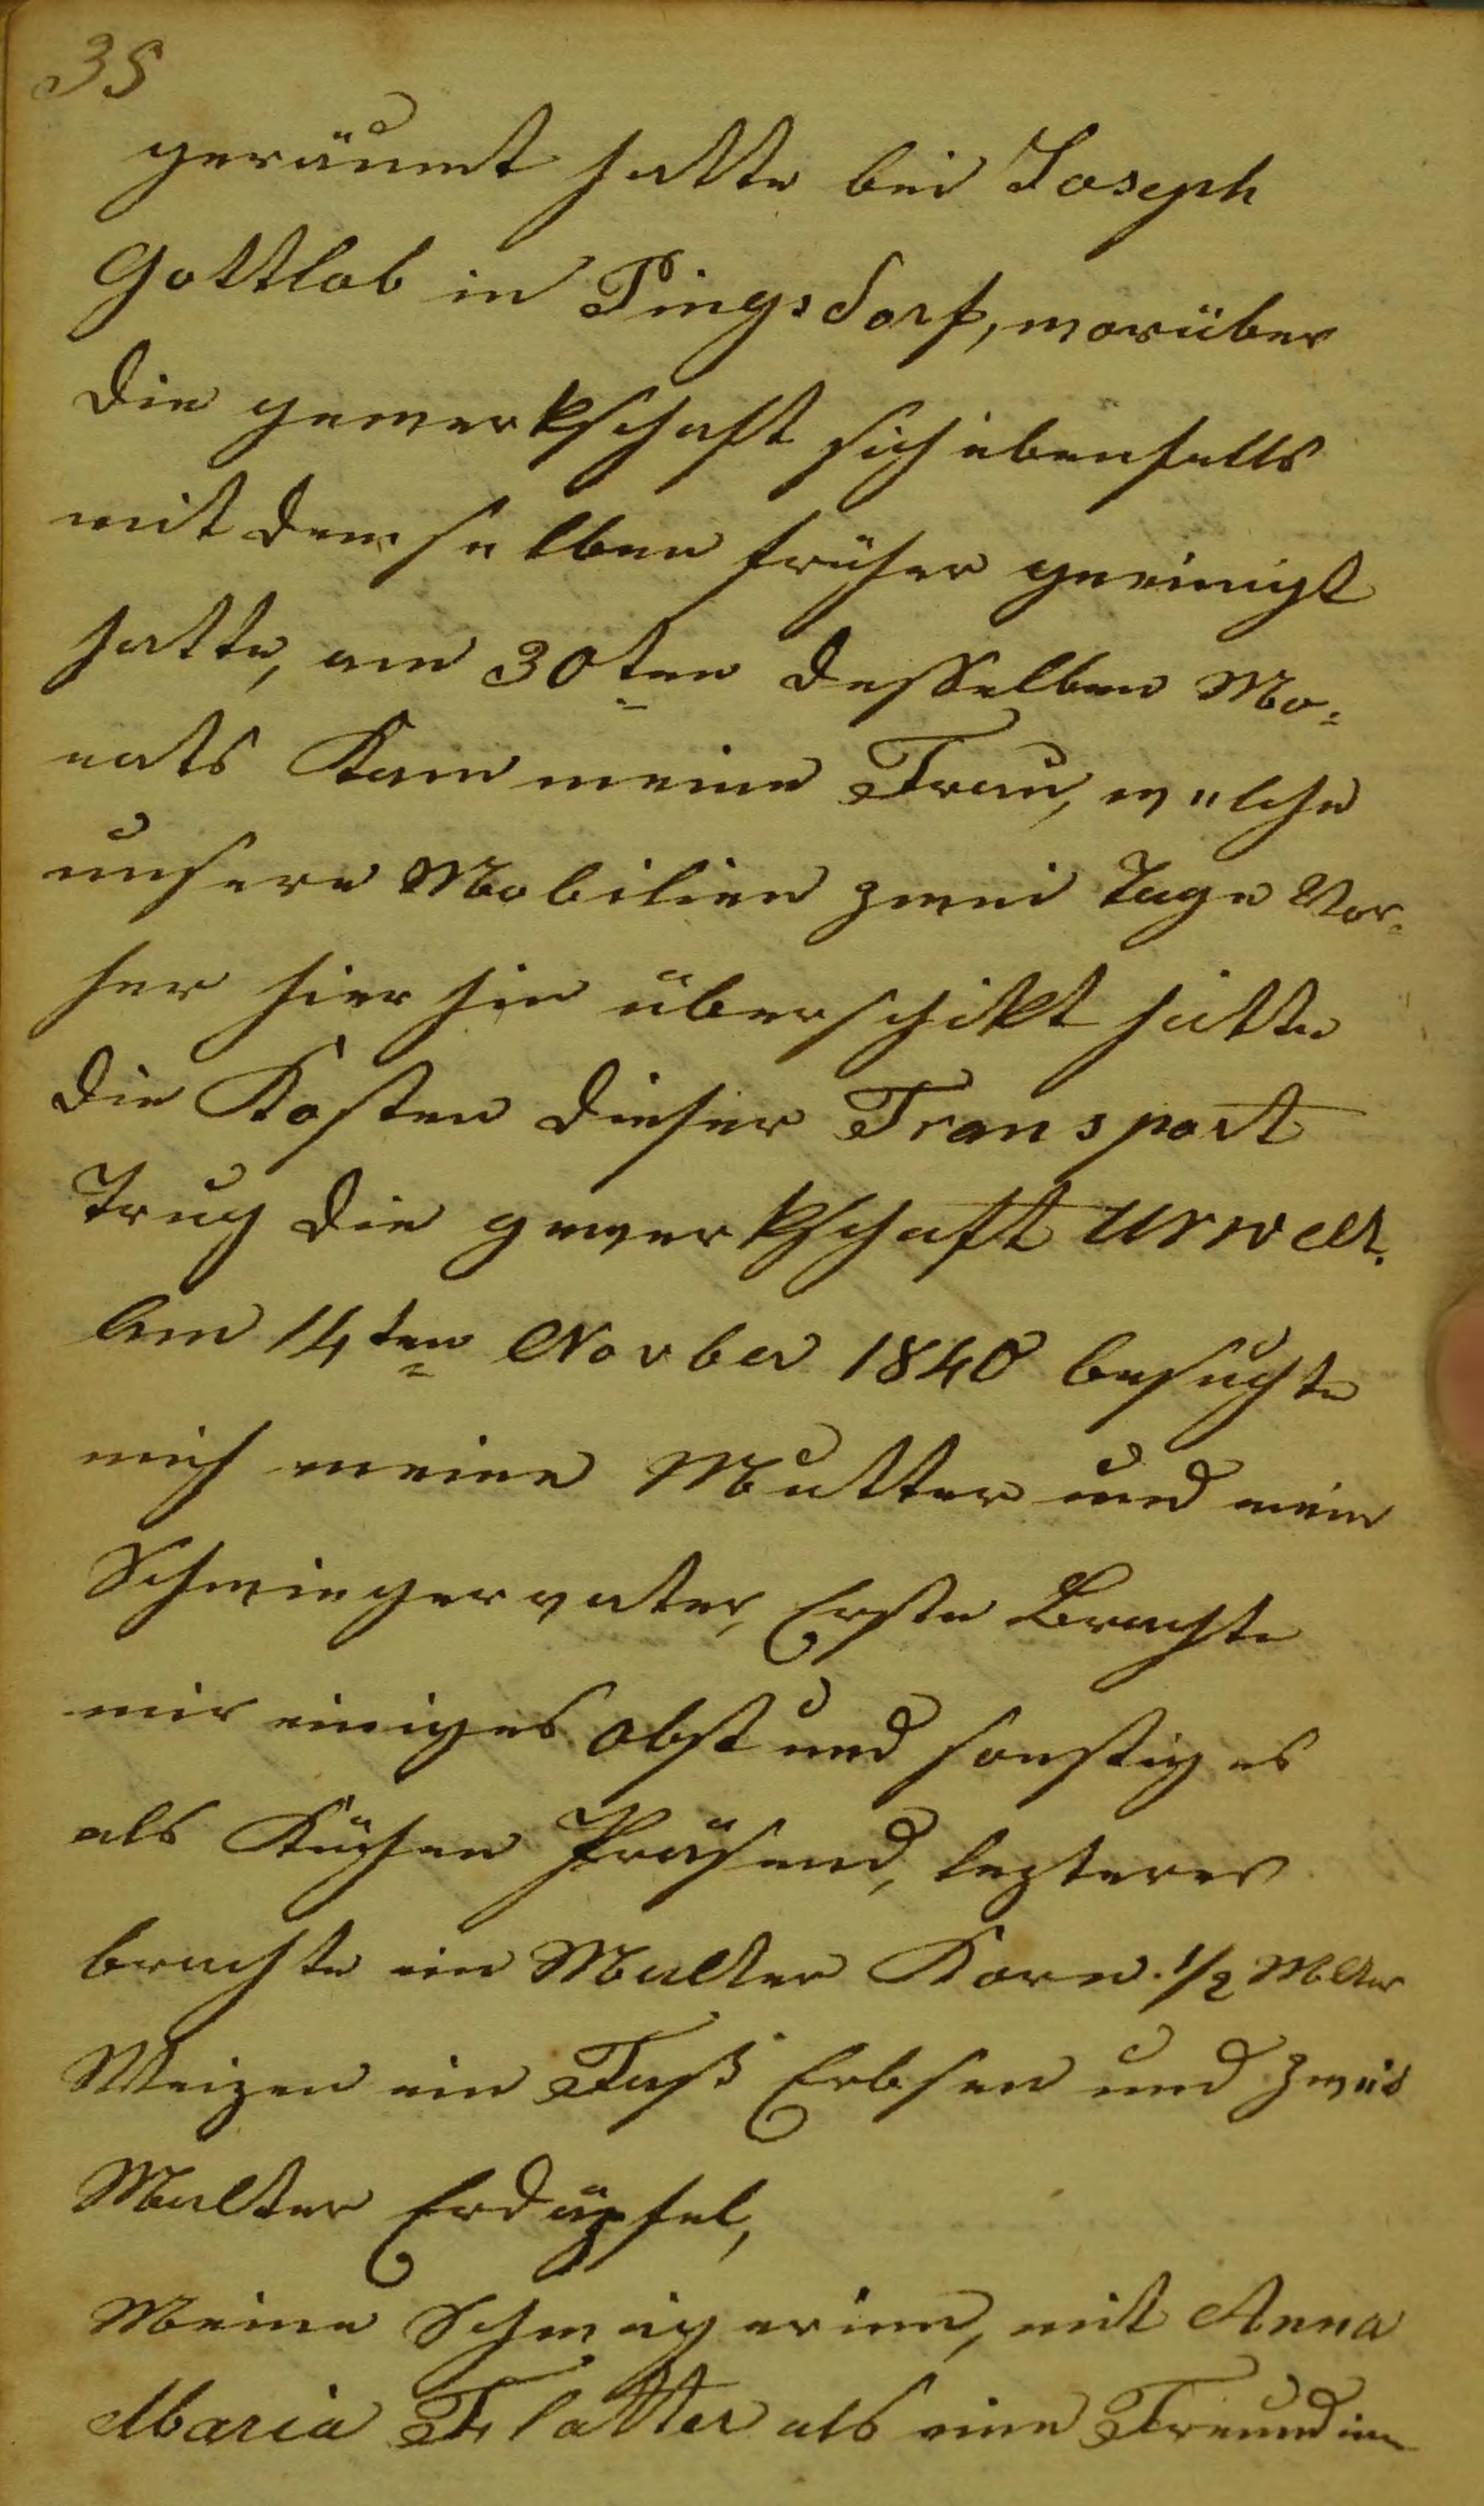 35
geräumt hatte bei Joseph
Gottlob in Pingsdorf, worüber
die gewerkschaft sich ebenfalls
mit demselben früher geeinigt
hatte, am 30ten desselben Mo=
nats Kam meine Frau, welche
unsere Mobilien zwei Tage Vor=
her hier hin überschikt hatte
die Kosten dieser Transport
Trug die gewerkschaft Urwelt.
Am 14ten Novber 1840 besuchte
mich meine Mutter und mein
Schwiegervater, Erste Brachte
mir einiges Obst und sonstiges
als Küchen Präsend, lezterer
brachte ein Malter Korn. 1/2 Mltr
Weizen ein Faß Erbsen und zwei
Malter Erdäpfel,
Meine Schwägerinn, mit Anna
Maria Flatter als eine Freundinn